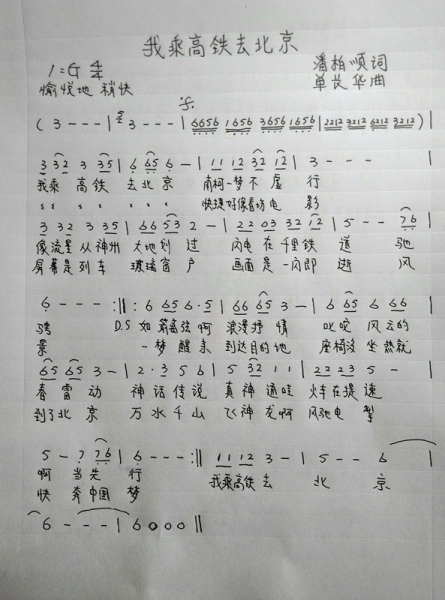 我乘高铁去北京
1=G 4/4 潘柏顺词
愉悦地 稍快 单长华曲
( 3 - - - | 3 - - - | 6656 1656 3656 1656 | 2212 3212 6212 3212 ) |
3 32 3 35 | 6 65 6 - | 11 12 32 12 | 3 - - -
我乘 高铁 去北京 南柯一梦不虚 行
快捷好像看场电 影
3 32 3 35 | 66 53 2 - | 22 03 32 12 | 5 - - 76
像流星从神州 大地划过 闪电在千里铁道 驰
屏幕是列车 玻璃窗户 画面是一闪即逝 风
6 - - - :||: 6 65 6·5 | 66 65 3 - | 6 65 6 66
骋 D.S 如箭离弦啊 浪漫抒情 叱咤风云的
景 一梦醒来 到达目的地 座椅没坐热就
65 65 3 - | 2·3 5 6 | 5 32 1 1 | 22 23 5 -
春雷动 神话传说 真神通哇 火车在提速
到了北京 万水千山 飞神龙啊 风驰电掣
5 - 7 76 | 6 - - - :|| 11 12 3 - | 5 - - 6
啊 当先行 我乘高铁去 北 京
快 奔中国梦
6 - - - | 6 0 0 0 ||